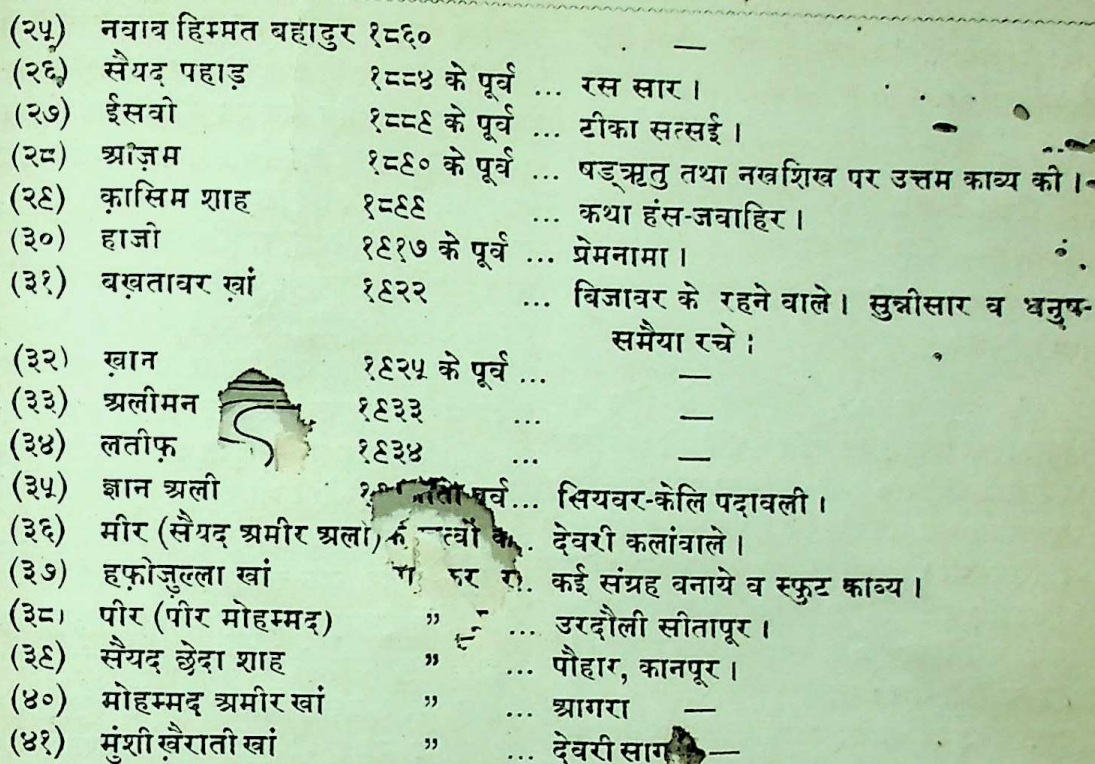 (२५) नवाब हिम्मत बहादुर १८६० —
(२६) सैयद पहाड़ १८८४ के पूर्व ... रस सार ।
(२७) ईसवी १८८९ के पूर्व ... टीका सत्सई ।
(२८) आज़म १८९० के पूर्व ... षड्ऋतु तथा नखशिख पर उत्तम काव्य की ।
(२९) क़ासिम शाह १८९९ ... कथा हंस-जवाहिर ।
(३०) हाजी १९१७ के पूर्व ... प्रेमनामा ।
(३१) बख़तावर ख़ां १९२२ ... बिजावर के रहने वाले । सुन्नीसार व धनुष-
समैया रचे ।
(३२) ख़ान १९२५ के पूर्व ... —
(३३) अलीमन १९३३ ... —
(३४) लतीफ़ १९३४ ... —
(३५) ज्ञान अली पूर्व... सियवर-केलि पदावली ।
(३६) मीर (सैयद अमीर अली) .. देवरी कलांवाले ।
(३७) हफ़ीजुल्ला खां कई संग्रह बनाये व स्फुट काव्य ।
(३८) पीर (पीर मोहम्मद) " ... उरदौली सीतापूर ।
(३९) सैयद छेदा शाह " ... पौहार, कानपूर ।
(४०) मोहम्मद अमीर खां " ... आगरा —
(४१) मुंशी ख़ैराती खां " ... देवरी —